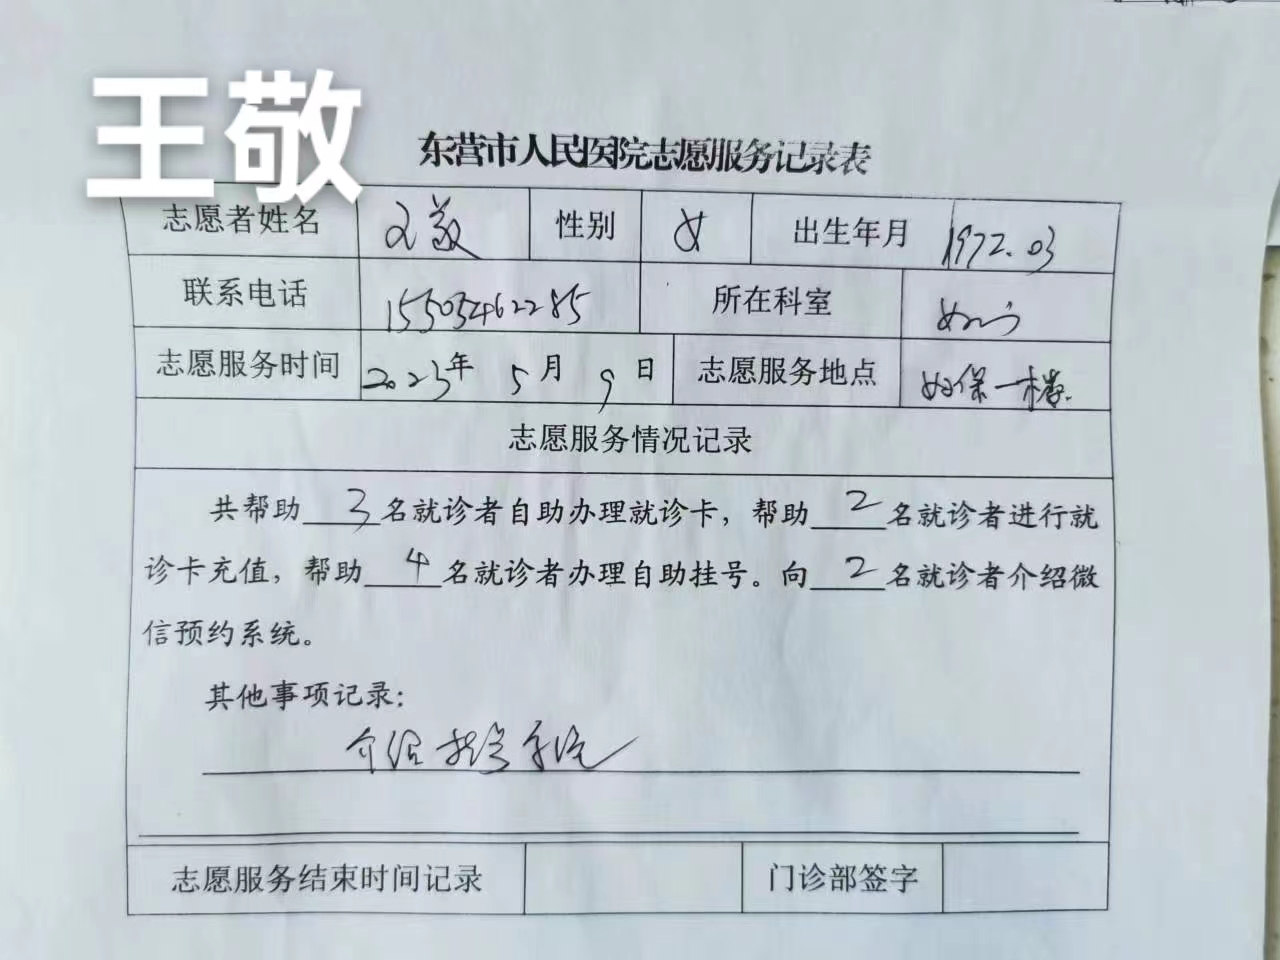 王敬
东营市人民医院志愿服务记录表
志愿者姓名 王敬 性别 女 出生年月 1972.03
联系电话 15505462285 所在科室
志愿服务时间 2023年 5月 9日 志愿服务地点 妇保一楼.
志愿服务情况记录
共帮助3名就诊者自助办理就诊卡，帮助2名就诊者进行就
诊卡充值，帮助4名就诊者办理自助挂号。向2名就诊者介绍微
信预约系统。
其他事项记录：
介绍挂号系统
志愿服务结束时间记录 门诊部签字